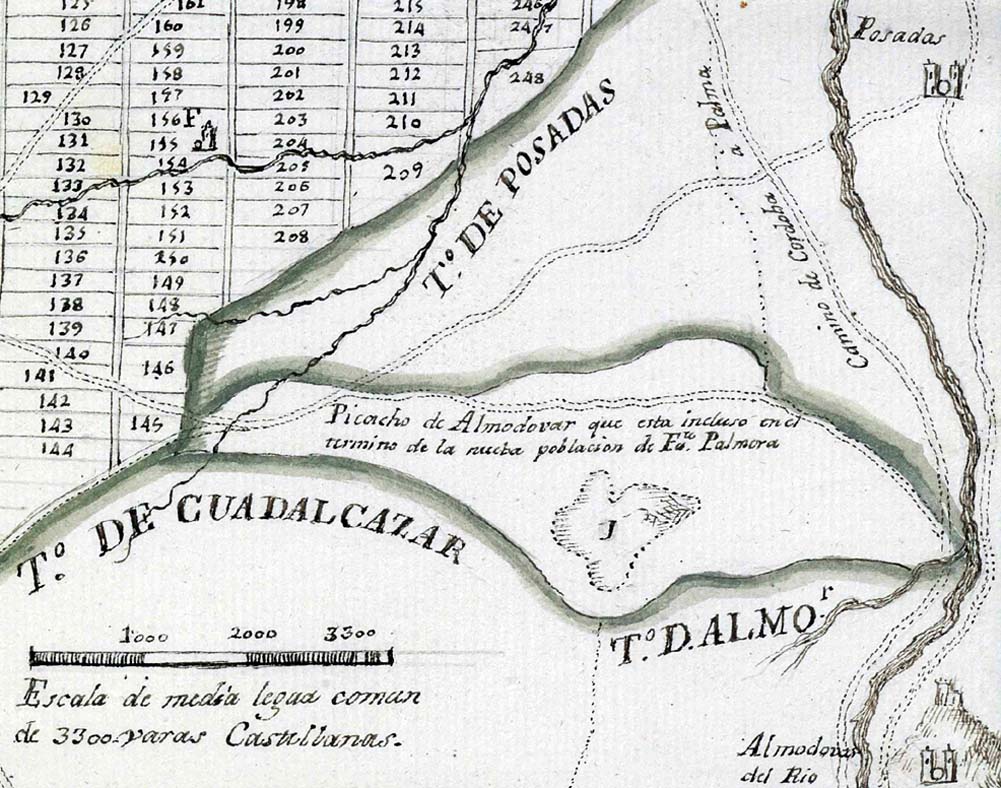 125 161 198 215 246
126 160 199 214 247
127 159 200 213
128 158 201 212 248
129 157 202 211
130 156 F 203 210
131 155 204
132 154 205 209
133 153 206
134 152 207
135 151 208
136 150
137 149
138 148
139 147
140
141 146
142
143 145
144
Posadas
a Palma
Camino de Cordoba
T.º DE POSADAS
Picacho de Almodovar que esta incluso en el
termino de la nueba poblacion de F.ᵗᵉ Palmera
J
T.º DE GUADALCAZAR
T.º D. ALMO.ʳ
1000 2000 3300
Escala de media legua comun
de 3300 varas Castellanas.
Almodovar
del Rio